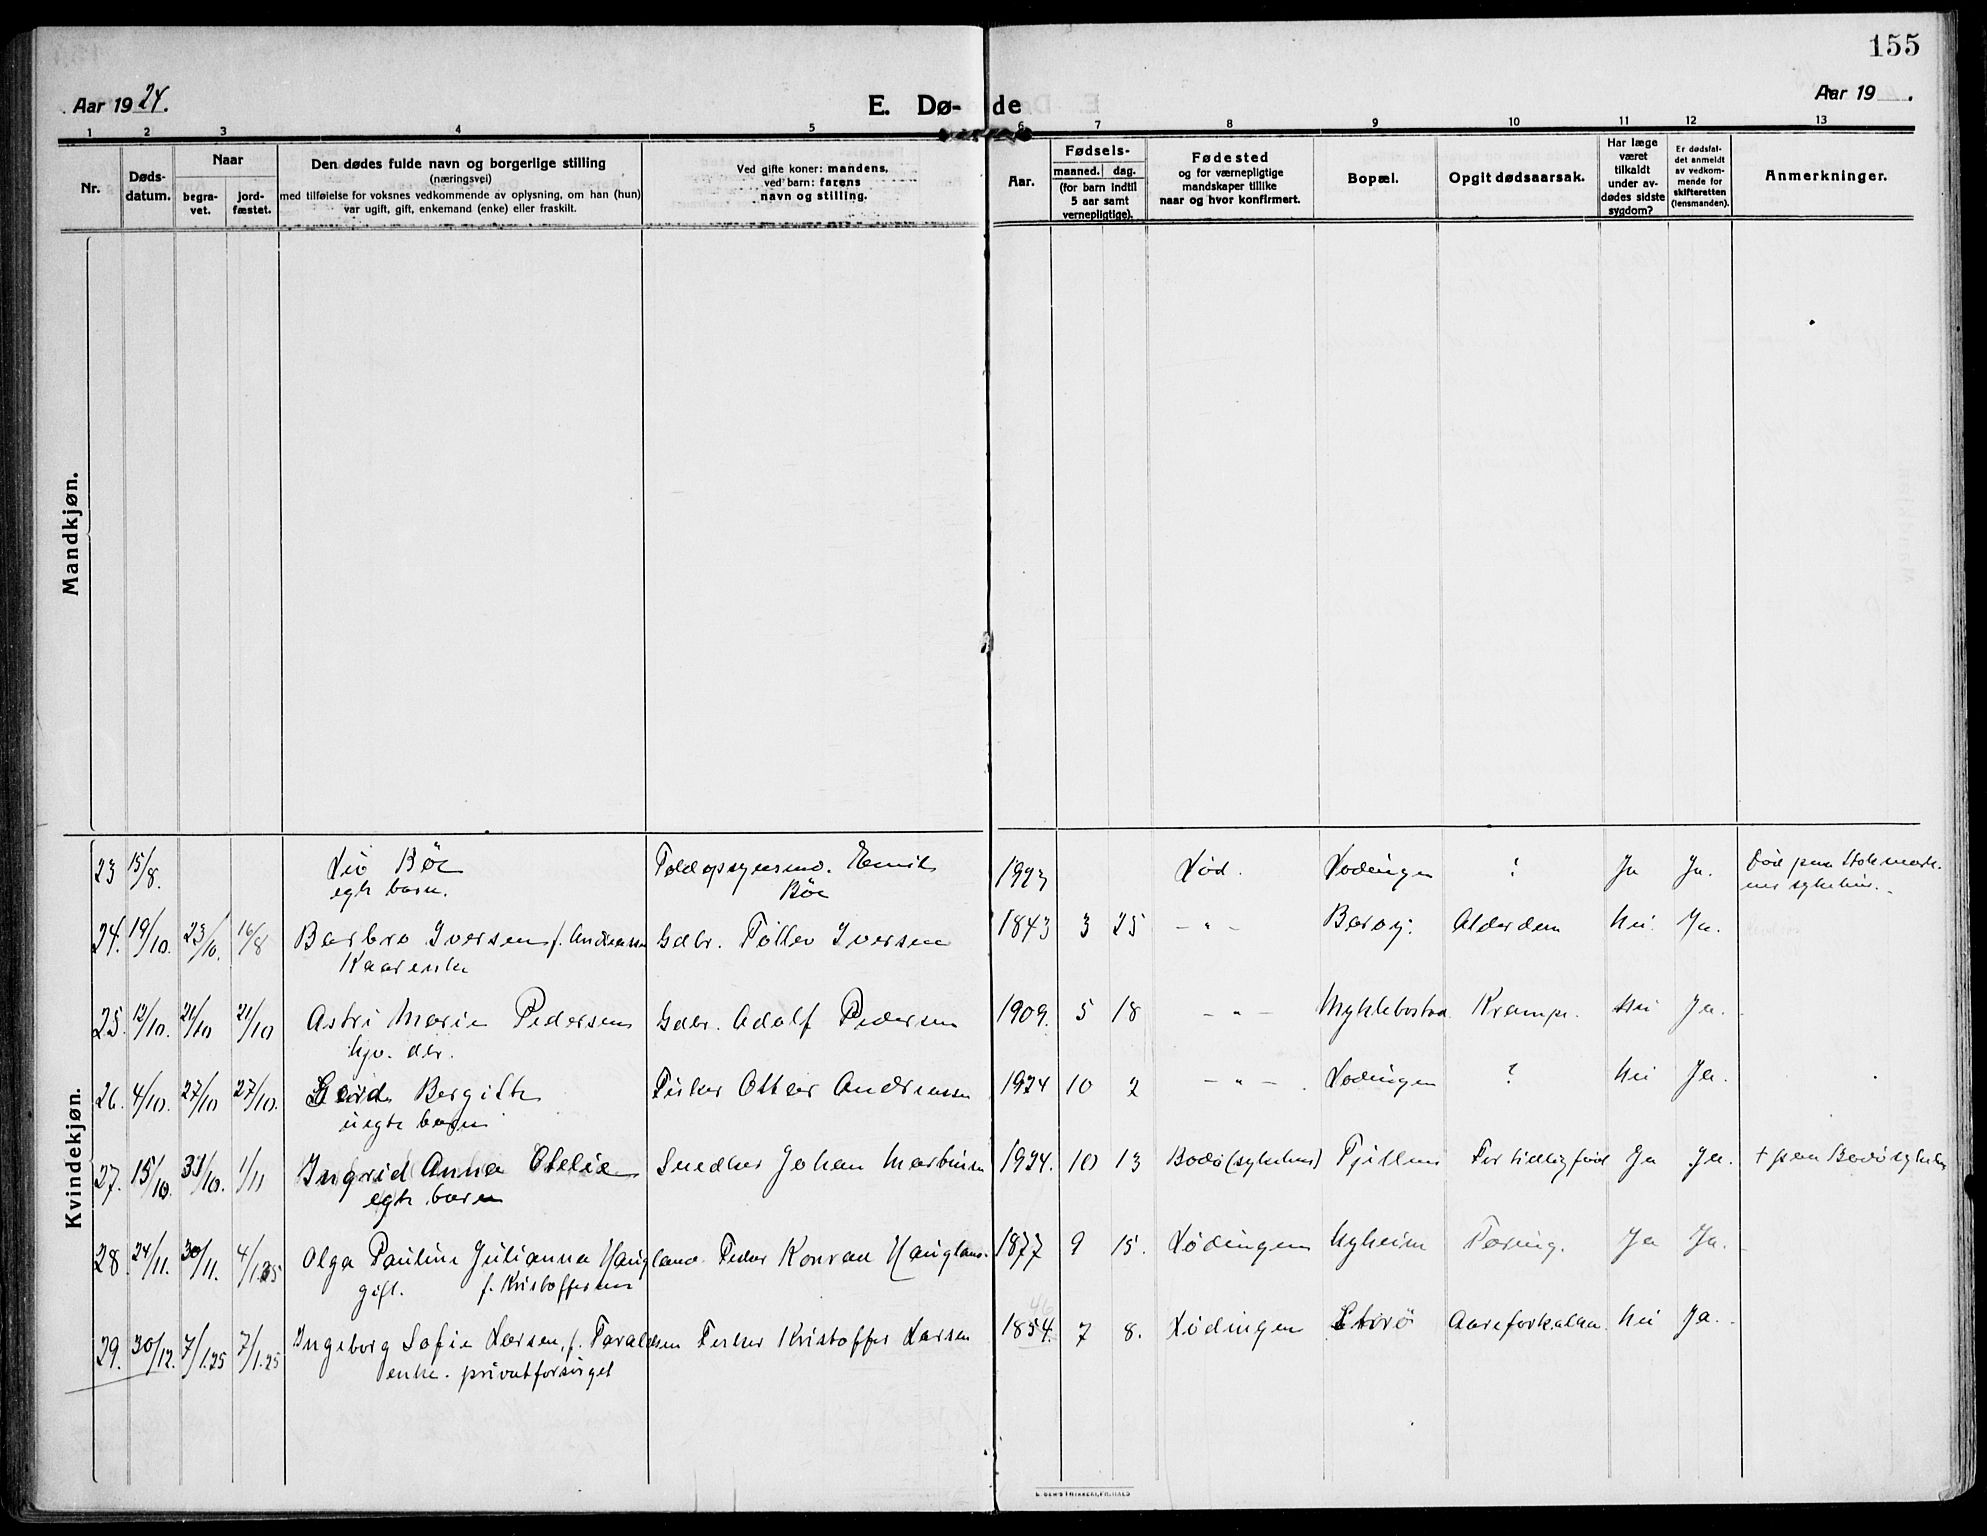 155
Aar 1924.
E. Dø- de
Aar 19 .
1 2 3 4 5 6 7 8 9 10 11 12 13
Nr.
Døds-
datum.
Naar
begra-
vet.
jord-
fæstet.
Den dødes fulde navn og borgerlige stilling
(næringsvei)
med tilføielse for voksnes vedkommende av oplysning, om han (hun)
var ugift, gift, enkemand (enke) eller fraskilt.
Ved gifte koner: mandens,
ved barn: farens
navn og stilling.
Aar.
Fødsels-
maaned. dag.
(for barn indtil
5 aar samt
vernepligtige).
Fødested
og for værnepligtige
mandskaper tillike
naar og hvor konfirmert.
Bopæl.
Opgit dødsaarsak.
Har læge
været
tilkaldt
under av-
dødes sidste
sygdom?
Er dødsfal-
det anmeldt
av vedkom-
mende for
skifteretten
(lensmanden).
Anmerkninger.
Mandkjøn.
Kvindekjøn.
23 15/8. Liv Böe Emil 1923 Lød. Lødingen ? Ja Ja. Död paa Stokmark-
egte barn. Böe nes sykehus.
24. 19/10. 23/10. 16/8 Barbro Iversen f. Andreassen Gdbr. Tollev Iversen 1843 3 25 -"- Baröy. Alderdom Nei. Ja.
Kaarenke
25. 12/10. 21/10 21/10 Astri Marie Pedersen Gdbr. Adolf Pedersen 1909. 5 18 -"- Myklebostad. Krampe. Nei Ja.
hjv. dtr.
26. 4/10. 27/10 27/10. Gerd Bergitte Fisker Otter Andreassen 1924 10 2 -"- Lødingen ? Nei Ja.
uegte barn
27. 15/10. 31/10. 1/11 Ingrid Anna Otelie Snedker Johan Martinsen 1924. 10 13 Bodö (sykehus) Fjellem For tidlig född Ja Ja. + paa Bodö sykehus
egte barn
28. 24/11. 30/11. 4/1.25 Olga Pauline Julianna Haugland. Fisker Konrad Haugland. 1877 9 15. Lödingen Nyheim Tæring. Ja Ja.
gift. f. Kristoffersen
46
29. 30/12. 7/1.25 7/1.25 Ingeborg Sofie Larsen, f. Taraldsen Fisker Kristoffer Larsen 1854. 7 8. Lödingen Storö Aareforkalkn. Nei Ja.
enke. privatforsörget